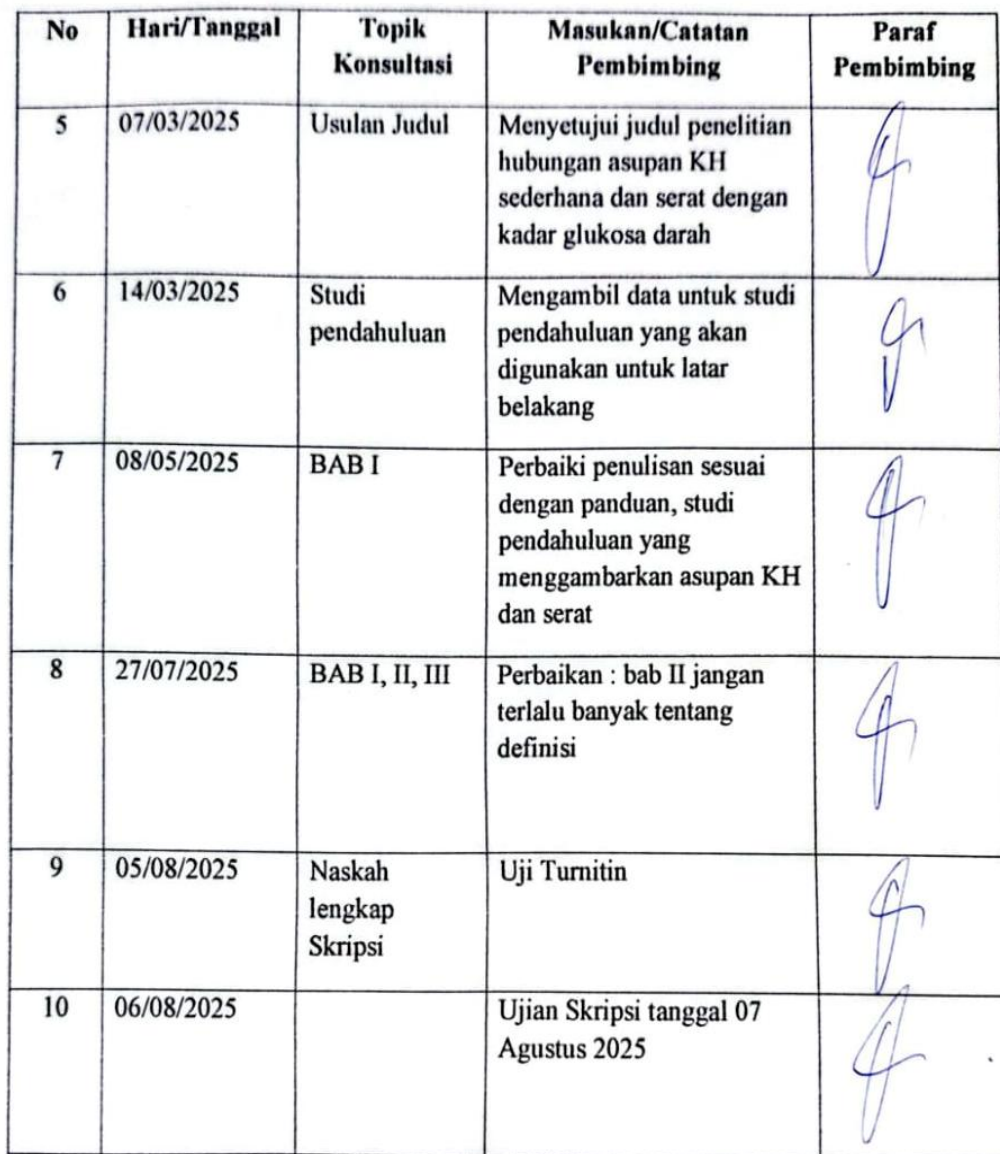 No Hari/Tanggal Topik Konsultasi Masukan/Catatan Pembimbing Paraf Pembimbing
5 07/03/2025 Usulan Judul Menyetujui judul penelitian
hubungan asupan KH
sederhana dan serat dengan
kadar glukosa darah
6 14/03/2025 Studi Mengambil data untuk studi
pendahuluan pendahuluan yang akan
digunakan untuk latar
belakang
7 08/05/2025 BAB I Perbaiki penulisan sesuai
dengan panduan, studi
pendahuluan yang
menggambarkan asupan KH
dan serat
8 27/07/2025 BAB I, II, III Perbaikan : bab II jangan
terlalu banyak tentang
definisi
9 05/08/2025 Naskah Uji Turnitin
lengkap
Skripsi
10 06/08/2025 Ujian Skripsi tanggal 07
Agustus 2025